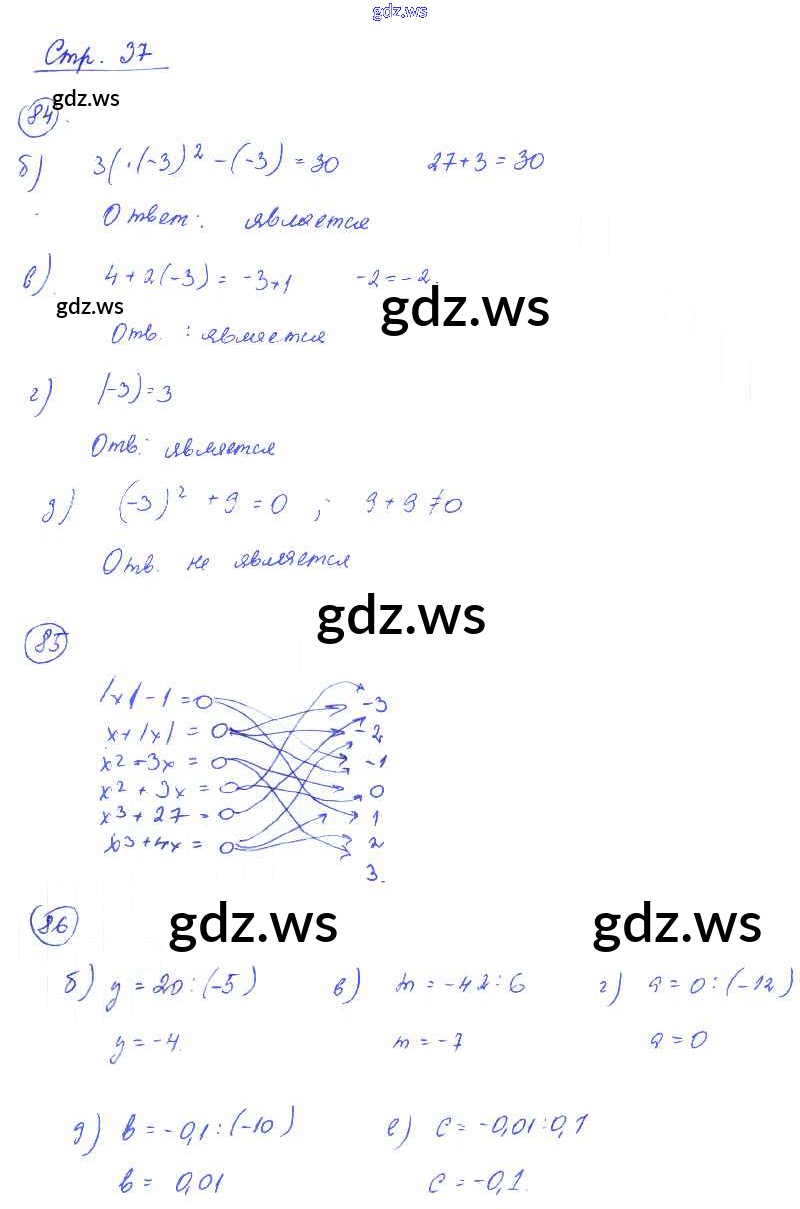 gdz.ws
Стр. 37
gdz.ws
84.
б) 3(·(-3)² - (-3) = 30 27+3 = 30
Ответ: является
в) 4+2(-3) = -3+1 -2 = -2.
gdz.ws gdz.ws
Отв. : является
г) |-3) = 3
Отв: является
д) (-3)² + 9 = 0 ; 9+9≠0
Отв. не является
gdz.ws
85
|x|-1 = 0 -3
x+|x| = 0 -2
x2-3x = 0 -1
x2 + 3x = 0 0
x3 + 27 = 0 1
x3+4x = 0 2
3.
86 gdz.ws gdz.ws
б) y = 20:(-5) в) m = -42:6 г) a = 0:(-12)
y = -4. m = -7 a = 0
д) b = -0,1:(-10) е) c = -0,01:0,1
b = 0,01 c = -0,1.